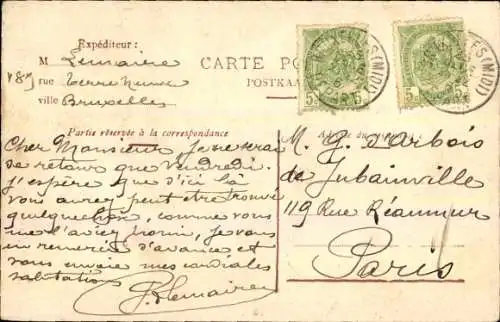 Expéditeur :
M Lemaire
rue Terre Neuve
ville Bruxelles
CARTE PO
POSTKAA
BRUXELLES (MIDI)
5 5
5 5
Partie réservée à la correspondance
Cher Monsieur, Je ne serai
de retour que vendredi.
J'espère que d'ici là
vous aurez peut être trouvé
quelque chose, comme vous
me l'aviez promis, je vous
en remercie d'avance et
vous envoie mes cordiales
salutations
Lemaire
M. P. d'Arbois
de Jubainville
119 Rue Réaumur
Paris